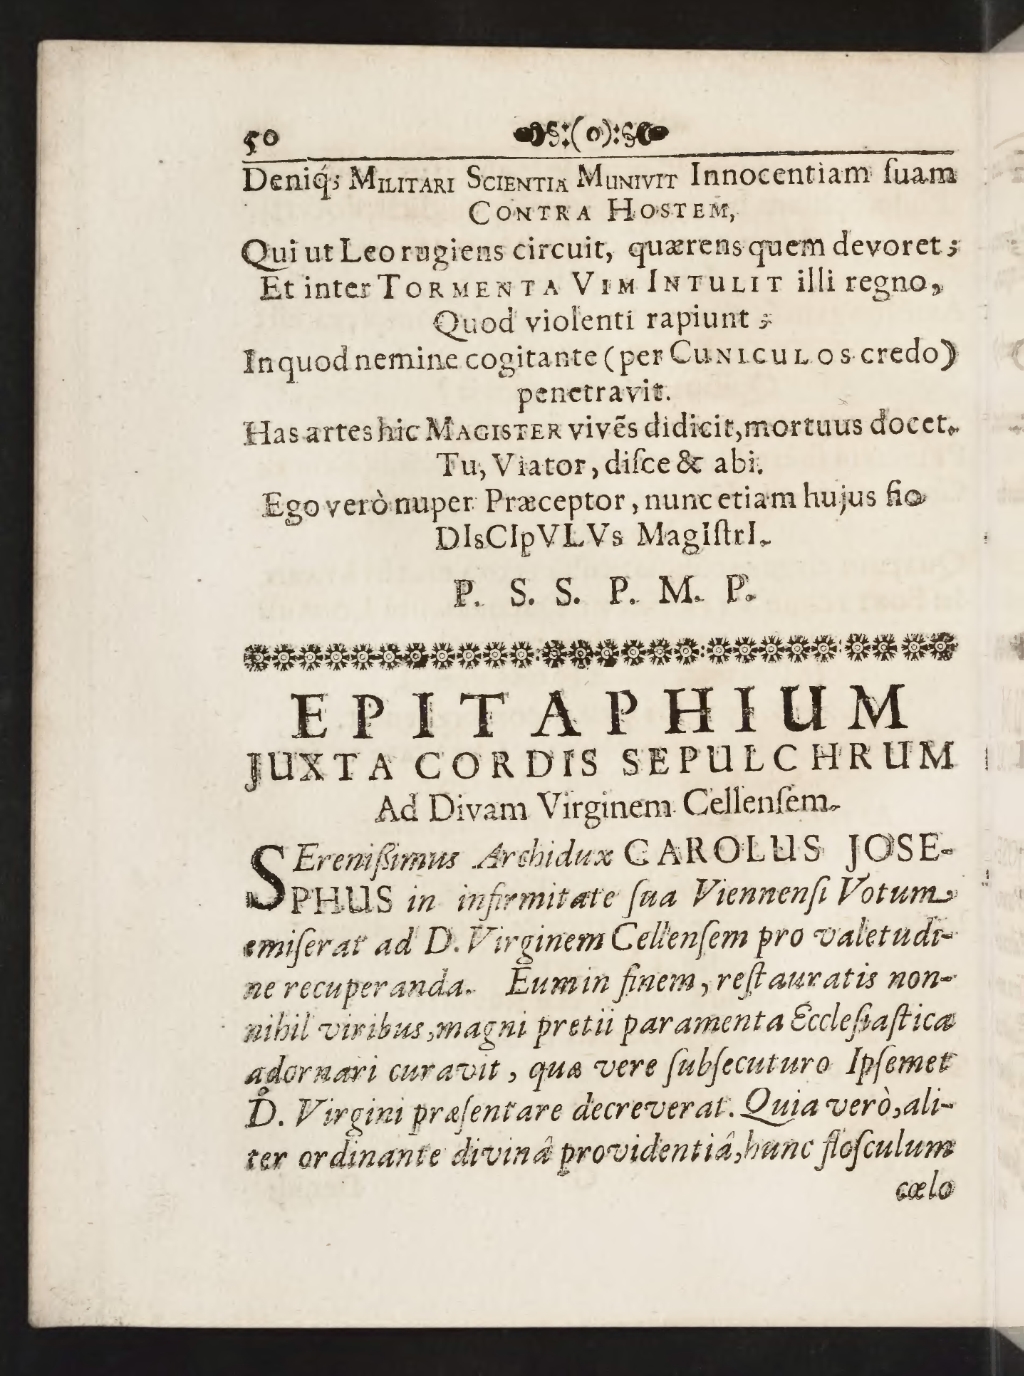 50 §:(o):§
Deniq́; MILITARI SCIENTIA MUNIVIT Innocentiam ſuam
CONTRA HOSTEM,
Qui ut Leo rugiens circuit, quærens quem devoret;
Et inter TORMENTA VIM INTULIT illi regno,
Quod violenti rapiunt;
In quod nemine cogitante (per CUNICULOS credo)
penetravit.
Has artes hic MAGISTER vivẽs didicit, mortuus docet.
Tu, Viator, diſce & abi.
Ego verò nuper Præceptor, nunc etiam hujus fio
DIsCIpVLVs MagIſtrI.
P. S. S. P. M. P.
EPITAPHIUM
JUXTA CORDIS SEPULCHRUM
Ad Divam Virginem Cellenſem.
SEreniſſimus Archidux CAROLUS JOSE-
PHUS in infirmitate ſua Viennenſi Votum
emiſerat ad D. Virginem Cellenſem pro valetudi-
ne recuperanda. Eum in finem, reſtauratis non-
nihil viribus, magni pretii paramenta Eccleſiaſtica
adornari curavit, quæ vere ſubſecuturo Ipſemet
D. Virgini præſentare decreverat. Quia verò, ali-
ter ordinante divinâ providentiâ, hunc floſculum
cœlo